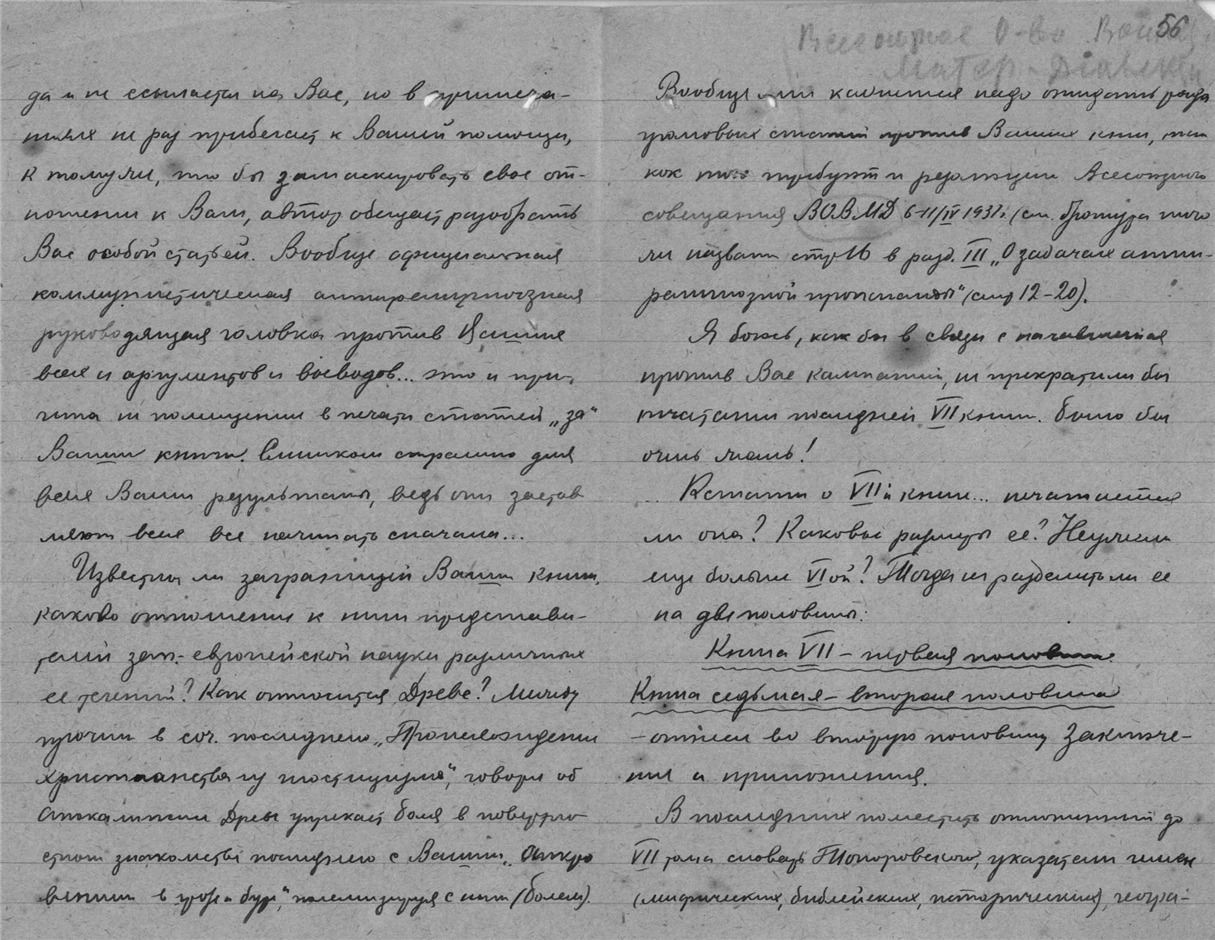 да и не ссылается на Вас, но в примеча-
ниях не раз прибегает к Вашей помощи,
к тому же, что бы замаскировать свое от-
ношение к Вам, автор обещает разобрать
Вас особой статьей. Вообще официальная
коммунистическая антирелигиозная
руководящая головка против Ваших
всех и аргументов и выводов... это и при-
чина не помещения в печати статей „за“
Ваши книги. Слишком страшно для
всех Ваши результаты, ведь они застав
ляют всех все начинать сначала...
Известны ли заграницей Ваши книги,
каково отношение к ним представи-
телей зап.-европейской науки различных
ее течений? Как относится Древс? Между
прочим в соч. последнего „Происхождение
христианства из гностицизма“, говоря об
Апокалипсисе Древс упрекает Боля в поверхно
стном знакомстве последнего с Вашим „Откро
вением в грозе и буре“, полемизируя с ним (Болем).
56
Всесоюзное О-во Воинст.
Матер. Диалект
Вообще мне кажется надо ожидать ряда
громовых статей против Ваших книг, так
как того требуют и резолюции Всесоюзного
совещания ВОВМД 6-11/IV 1931г. (см. брошюра того
же названия стр 16 в разд. III „О задачах анти-
религиозной пропаганды“ (стр 12-20).
Я боюсь, как бы в связи с начавшейся
против Вас кампанией, не прекратили бы
печатание последней VII книги. Было бы
очень жаль!
Кстати о VIIй книге... печатается
ли она? Каковы размеры ее? Неужели
еще больше VIой? Тогда не разделить ли ее
на две половины:
Книга VII – первая половина
Книга седьмая – вторая половина
– отнеся во вторую половину Заключе-
ние и приложения.
В последних поместить отложенный до
VII тома словарь Топоровского, указатели имен
(мифических, библейских, исторических), геогра-